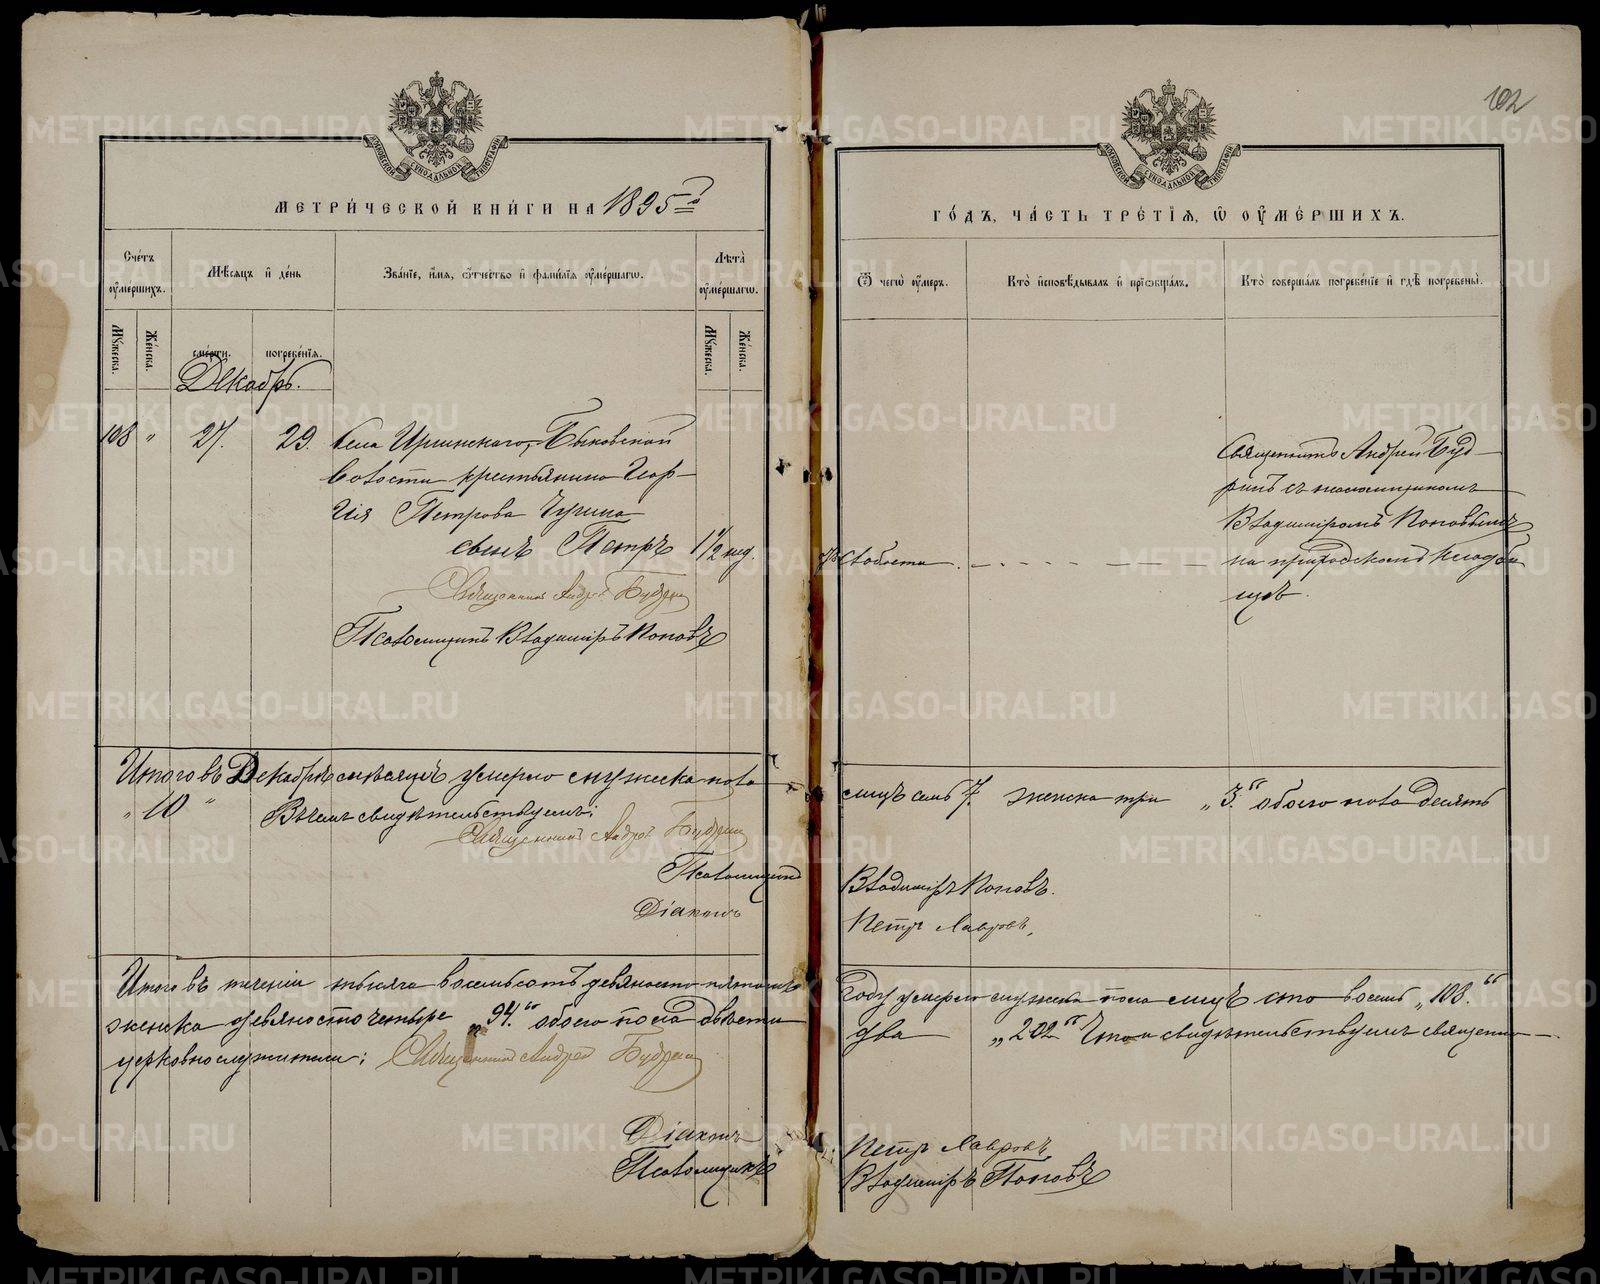 102
МОСКОВСКОЙ СѴНОДАЛЬНОЙ ТИПОГРАФІИ
МОСКОВСКОЙ СѴНОДАЛЬНОЙ ТИПОГРАФІИ
МЕТРИ́ЧЕСКОЙ КНИ́ГИ НА 1895й
ГО́ДЪ, ЧА́СТЬ ТРЕ́ТІѦ, Ѽ ОУ҆МЕ́РШИХЪ.
Сче́тъ оу҆ме́ршихъ.
Мѣ́сѧцъ и҆ де́нь
Зва́нїе, и҆́мѧ, ѻ҆́тчество и҆ фами́лїѧ оу҆ме́ршагѡ.
Лѣ́та оу҆ме́ршагѡ.
Ѿ чегѡ̀ оу҆́меръ.
Кто̀ и҆сповѣ́дывалъ и҆ прїѡбща́лъ.
Кто̀ соверша́лъ погребе́нїе и҆ гдѣ̀ погребены̀.
Мꙋ́жеска.
Же́нска.
сме́рти.
погребе́нїѧ.
Мꙋ́жеска.
Же́нска.
Декабрь.
108 " 27. 29. Села Иргинскаго, Быковской
волости крестьянина Геор-
гія Петрова Чугина
сынъ Петръ 1 1/2 нед.
Священникъ Андрей Будрин
Псаломщикъ Владиміръ Поповъ
отъ слабости
Священникъ Андрей Буд-
ринъ съ псаломщикомъ
Владиміромъ Поповымъ
на приходскомъ кладби-
щѣ.
Итого въ Декабрѣ мѣсяцѣ умерло мужеска пола
семь 7. женска три "3." обоего пола десять
"10"
Въ чемъ свидѣтельствуемъ:
Священникъ Андрей Будрин
Псаломщикъ Владиміръ Поповъ.
Діаконъ Петръ Лавровъ.
Итого въ теченіи тысяча восемьсотъ девяносто пятомъ
Году умерло мужска пола сто восемь "108."
женска девяносто четыре "94." обоего пола двѣсти
два "202" Что и свидѣтельствуемъ священно-
церковнослужители: Священникъ Андрей Будрин
Діаконъ Петръ Лавровъ
Псаломщикъ Владиміръ Поповъ
METRIKI.GASO-URAL.RU